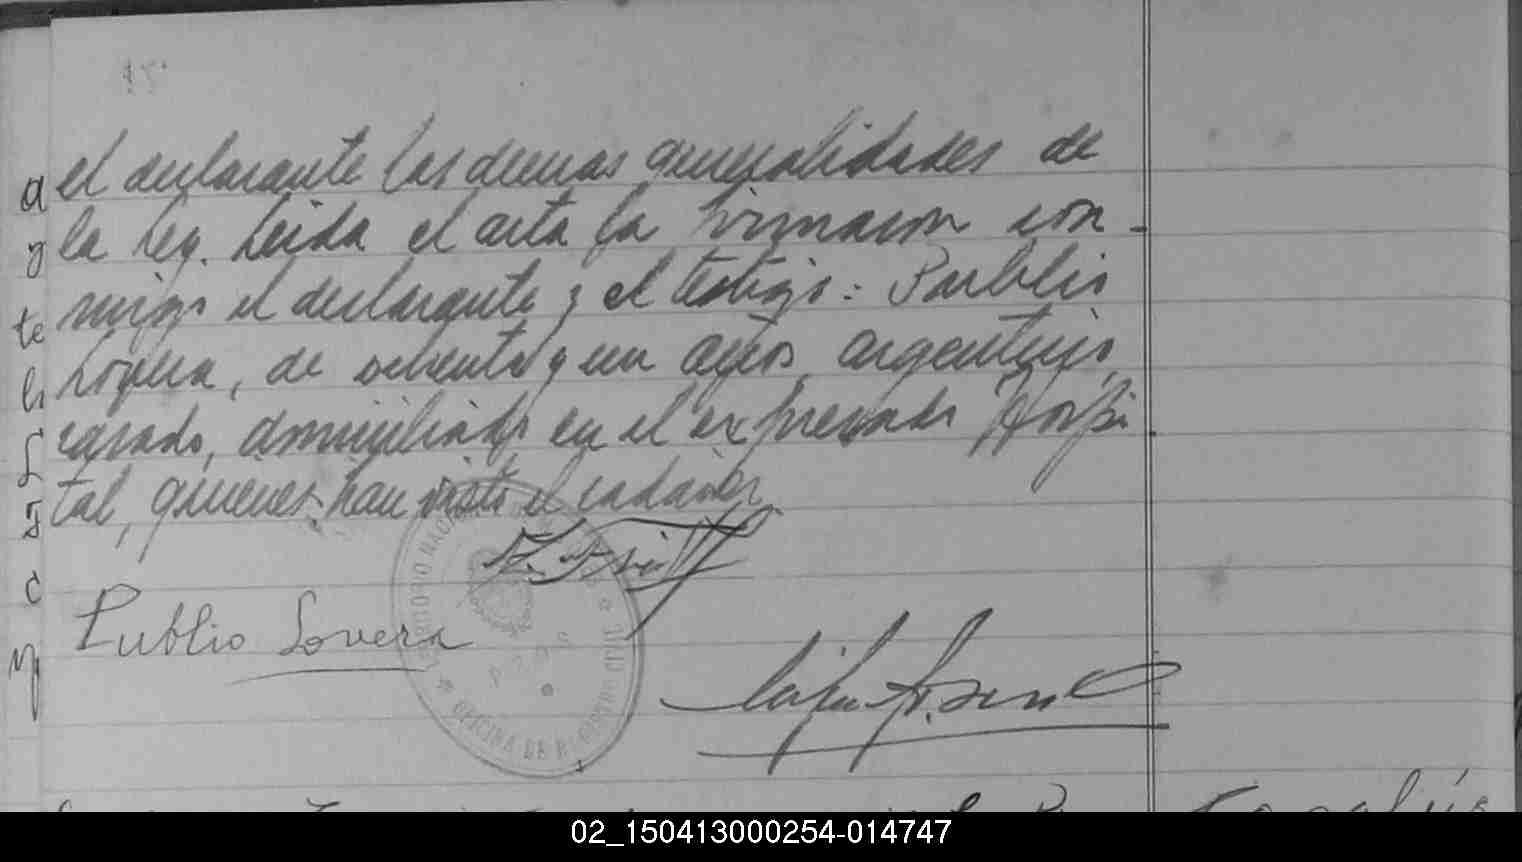 el declarante las demas generalidades de
la ley. Leida el acta la firmaron con-
migo el declarante y el testigo: Publio
Lovera, de ochenta y un años, argentino,
casado, domiciliado en el expresado Hospi-
tal, quienes han visto el cadaver.
Publio Lovera
OFICINA DE
02_150413000254-014747